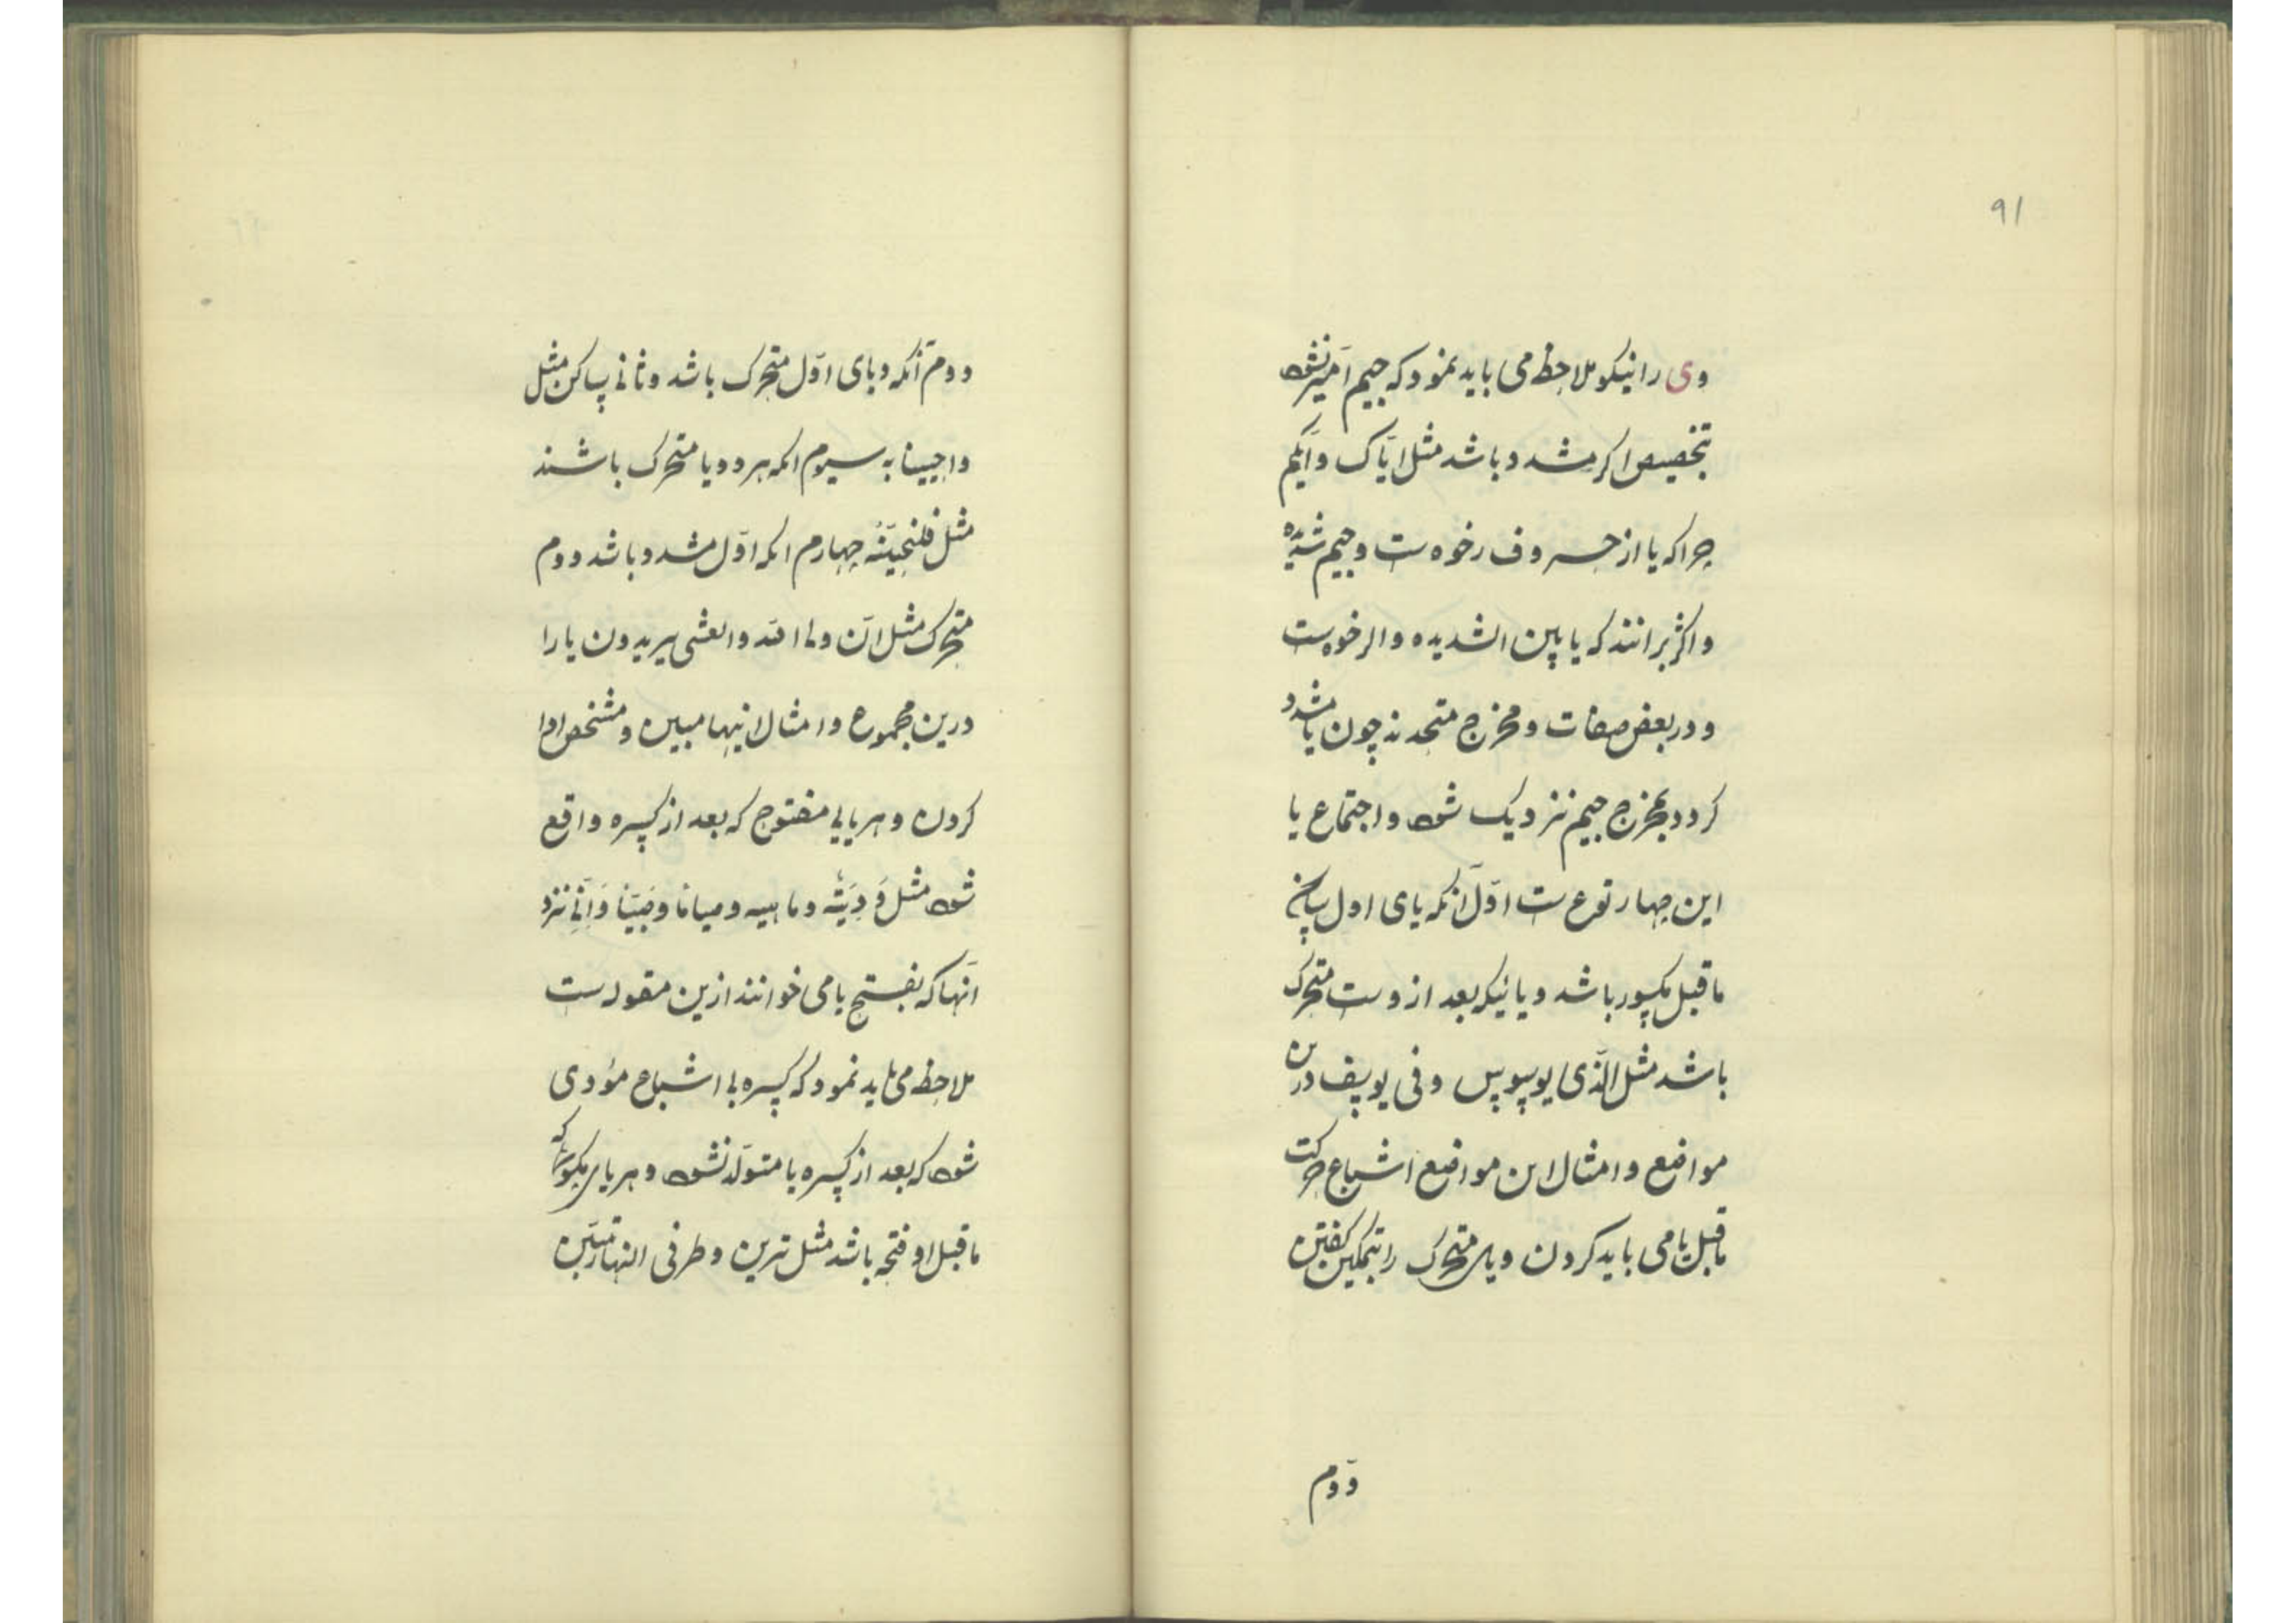 ۹۱
وی را نیکو ملاحظه می باید نمود که جیم آمیز نشود
تخصیص اکر مشدد باشد مثل ایّاک و ایّکم
چرا که یا از حروف رخوه ست و جیم شدیده
و اکثر برانند که یا بین الشدیده والرخوست
و در بعض صفات و مخرج متحدند چون یا مشدد
کردد بمخرج جیم نزدیک شود و اجتماع یا
این چهار نوع ست اوّل آنکه یای اول ساکن
ماقبل مکسور باشد و یائیکه بعد ازوست متحرک
باشد مثل الّذی یوسوس و فی یوسف درین
مواضع و امثال این مواضع اشباع حرکت
ماقبل یا می باید کردن و یای متحرک را بتمکین کفتن
دوم
دوم آنکه ویای اوّل متحرک باشد و ثانی ساکن مثل
واحیینا به سیوم انکه هر دو یا متحرک باشند
مثل فلنحیینّه چهارم انکه اوّل مشدد باشد دوم
متحرک مثل انّ ولی الله والعشی یریدون یا را
درین مجموع و امثال اینها مبین و مشخص ادا
کردن و هر یایی مفتوح که بعد از کسره واقع
شود مثل وَدِیَتْه وماهیه و میانا و نزد
آنها که بفتح یا می خوانند ازین مقوله ست
ملاحظه می باید نمود که کسره بی اشباع مؤدی
شود که بعد از کسره یا متولّد نشود و هر یای مکسور که
ماقبل او فتحه باشد مثل ترین و طرفی النهار